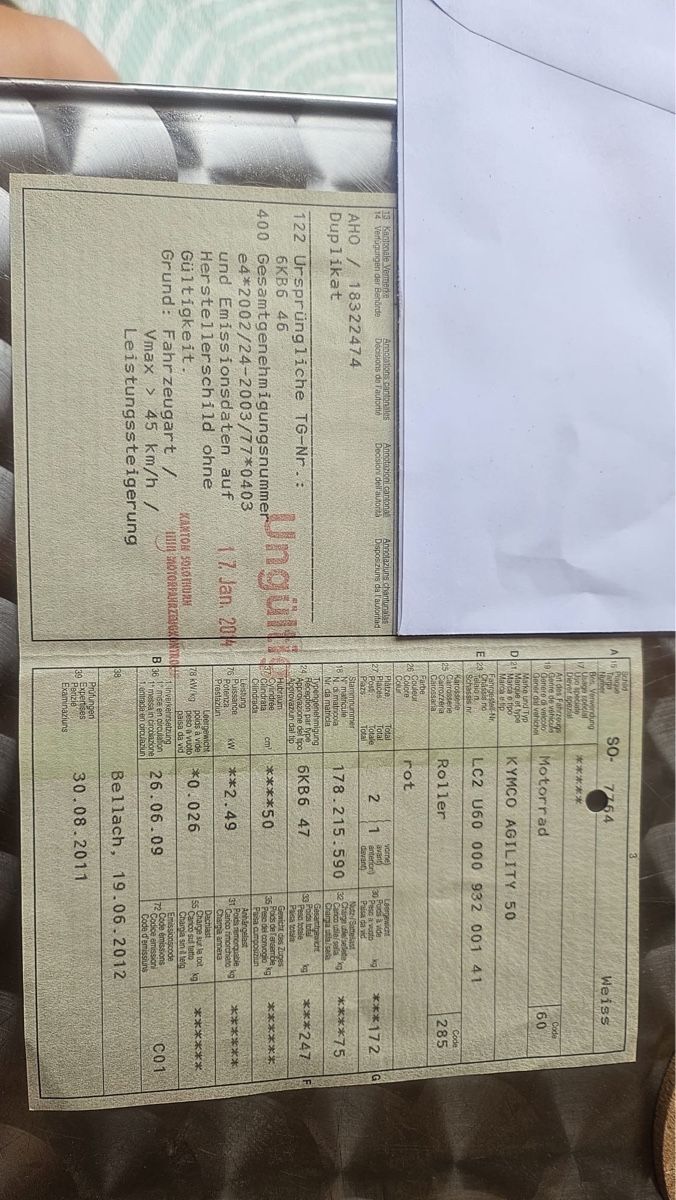 13 Kantonale Vermerke Annotations cantonales Annotazioni cantonali Annotaziuns chantunalas
14 Verfügungen der Behörde Décisions de l'autorité Decisioni dell'autorità Disposiziuns da l'autoritad
AHO / 18322474
Duplikat
122 Ursprüngliche TG-Nr.:
6KB6 46
400 Gesamtgenehmigungsnummer
e4*2002/24-2003/77*0403
und Emissionsdaten auf
Herstellerschild ohne
Gültigkeit.
Grund: Fahrzeugart /
Vmax > 45 km/h /
Leistungssteigerung
17. Jan. 2014
KANTON SOLOTHURN
3
A 15 Schild
SO- 7764 Weiss
17 Bes. Verwendung
*****
19 Art des Fahrzeugs
Motorrad
Code
60
D 21 Marke und Typ
Marque et type
KYMCO AGILITY 50
E 23 Fahrgestell-Nr.
Châssis no
LC2 U60 000 932 001 41
25 Karosserie
Carrosserie
Carrozzeria
Roller
Code
285
26 Farbe
Couleur
Colore
Colur
rot
27 Plätze Total
Places Total
Posti Totale
Plazs Total
2
vorne)
avant)
anteriori)
davant)
1
30 Leergewicht
Poids à vide
Peso a vuoto
Paisa da vid
kg
***172 G
18 Stammnummer
N° matricule
N. di matricola
Nr. da matricla
178.215.590
32 Nutz-/Sattellast
kg
****75
24 Typengenehmigung
Réception par type
Approvazione del tipo
6KB6 47
33 Gesamtgewicht
Poids total
Peso totale
Paisa totala
kg
***247 F
37 Hubraum
Cylindrée
Cilindrata
cm³
****50
35 Gewicht des Zuges
Poids de l'ensemble
kg
******
76 Leistung
Puissance
Potenza
Prestaziun
kW
**2.49
31 Anhängelast
Poids remorquable
kg
******
78 kW/kg Leergewicht
poids à vide
peso a vuoto
paisa da vid
*0.026
55 Dachlast
Charge sur le toit
Carico sul tetto
kg
******
B 36 1. Inverkehrsetzung
1re mise en circulation
26.06.09
72 Emissionscode
Code émissions
Codice emissioni
Code d'emissiuns
C01
38
Bellach, 19.06.2012
39 Prüfungen
Expertises
Perizie
Examinaziuns
30.08.2011